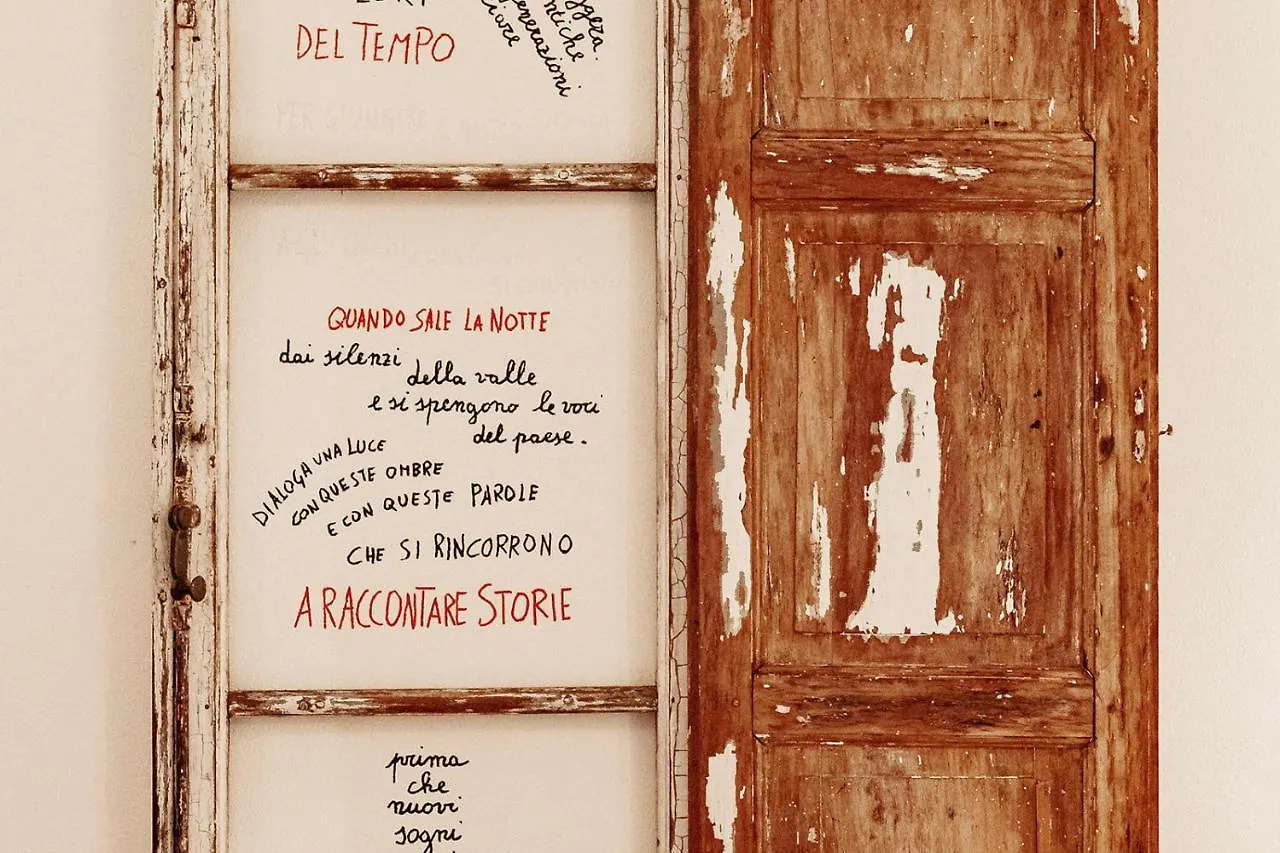 DEL TEMPO
QUANDO SALE LA NOTTE
dai silenzi
della valle
e si spengono le voci
del paese.
DIALOGA UNA LUCE
CON QUESTE OMBRE
E CON QUESTE PAROLE
CHE SI RINCORRONO
A RACCONTARE STORIE
prima
che
nuovi
sogni